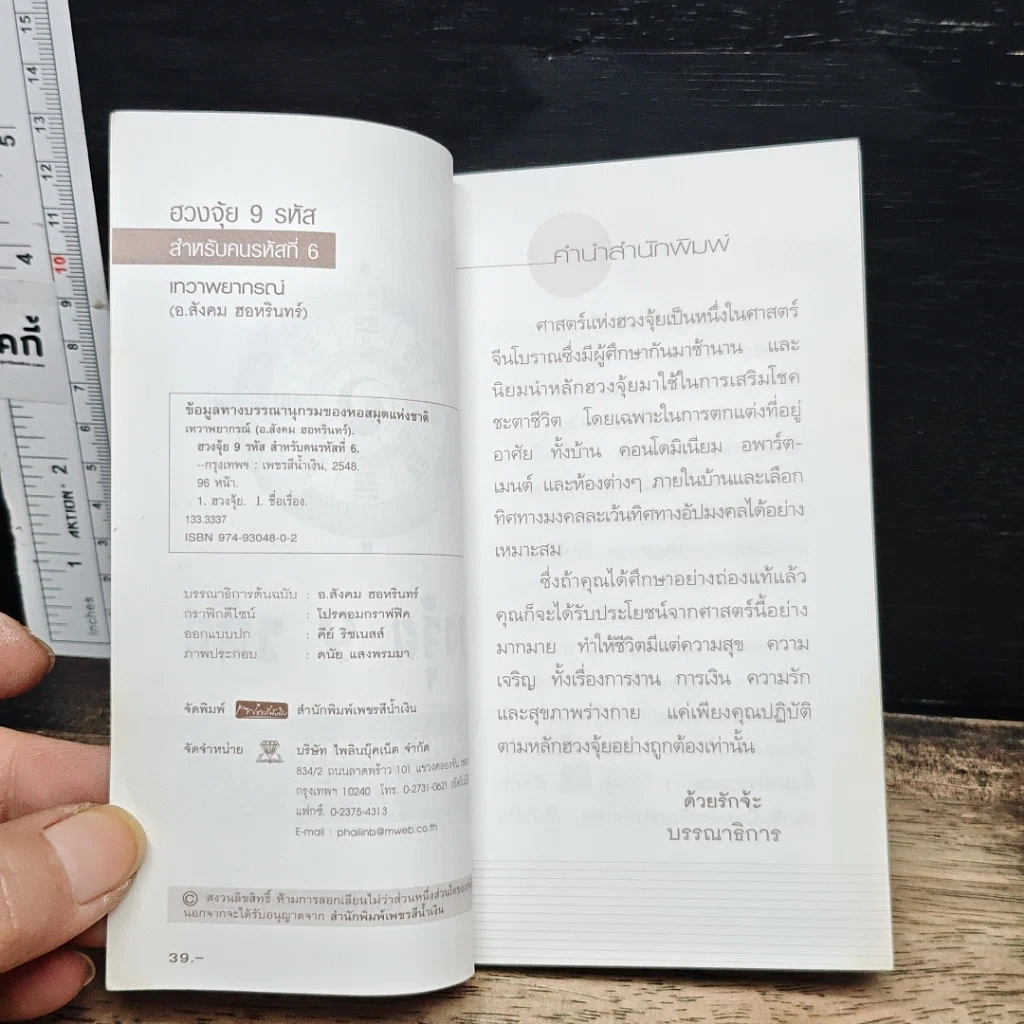 ฮวงจุ้ย 9 รหัส
สำหรับคนรหัสที่ 6
เทวาพยากรณ์
(อ.สังคม ฮอหรินทร์)
ข้อมูลทางบรรณานุกรมของหอสมุดแห่งชาติ
เทวาพยากรณ์ (อ.สังคม ฮอหรินทร์).
ฮวงจุ้ย 9 รหัส สำหรับคนรหัสที่ 6.
--กรุงเทพฯ : เพชรสีน้ำเงิน, 2548.
96 หน้า.
1. ฮวงจุ้ย. I. ชื่อเรื่อง.
133.3337
ISBN 974-93048-0-2
บรรณาธิการต้นฉบับ : อ.สังคม ฮอหรินทร์
กราฟิกดีไซน์ : โปรคอมกราฟฟิค
ออกแบบปก : คีย์ ริชเนสส์
ภาพประกอบ : ดนัย แสงพรมมา
จัดพิมพ์ สำนักพิมพ์เพชรสีน้ำเงิน
จัดจำหน่าย บริษัท ไพลินบุ๊คเน็ต จำกัด
834/2 ถนนลาดพร้าว 101 แขวงคลองจั่น
กรุงเทพฯ 10240 โทร. 0-2731-0621
แฟกซ์. 0-2375-4313
E-mail : phailinb@mweb.co.th
© สงวนลิขสิทธิ์ ห้ามการลอกเลียนไม่ว่าส่วนหนึ่งส่วนใด
นอกจากจะได้รับอนุญาตจาก สำนักพิมพ์เพชรสีน้ำเงิน
39.-
คำนำสำนักพิมพ์
ศาสตร์แห่งฮวงจุ้ยเป็นหนึ่งในศาสตร์
จีนโบราณซึ่งมีผู้ศึกษากันมาช้านาน และ
นิยมนำหลักฮวงจุ้ยมาใช้ในการเสริมโชค
ชะตาชีวิต โดยเฉพาะในการตกแต่งที่อยู่
อาศัย ทั้งบ้าน คอนโดมิเนียม อพาร์ต-
เมนต์ และห้องต่างๆ ภายในบ้านและเลือก
ทิศทางมงคลละเว้นทิศทางอัปมงคลได้อย่าง
เหมาะสม
ซึ่งถ้าคุณได้ศึกษาอย่างถ่องแท้แล้ว
คุณก็จะได้รับประโยชน์จากศาสตร์นี้อย่าง
มากมาย ทำให้ชีวิตมีแต่ความสุข ความ
เจริญ ทั้งเรื่องการงาน การเงิน ความรัก
และสุขภาพร่างกาย แค่เพียงคุณปฏิบัติ
ตามหลักฮวงจุ้ยอย่างถูกต้องเท่านั้น
ด้วยรักจ้ะ
บรรณาธิการ
15
14
13
12
11
10
9
8
7
6
5
4
3
5
4
2
1
AKTION
inches